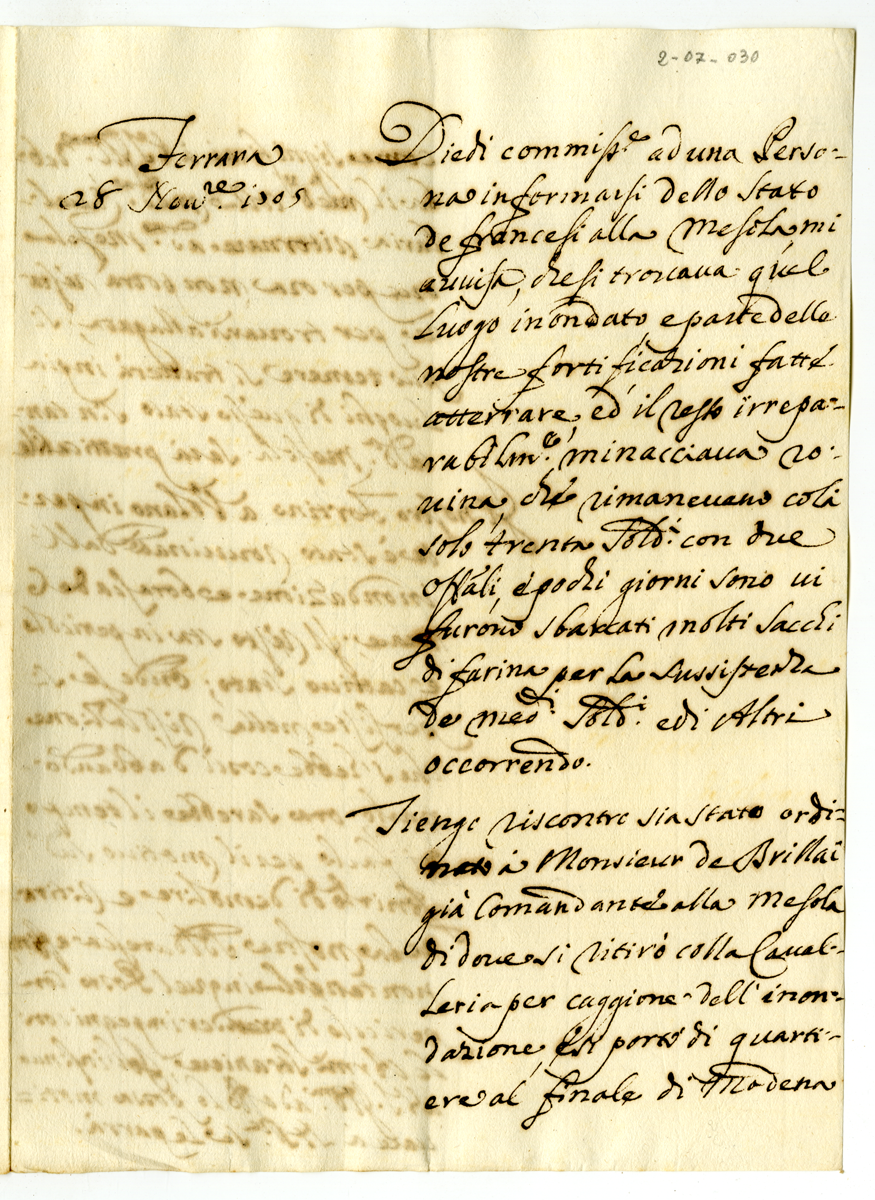 2-07-030
Ferrara
28 Nov.re 1705
Diedi commiss.e ad una Perso-
na informarsi dello stato
de francesi alla Mesola, mi
avvisa, che si trovava quel
Luogo inondato, e parte delle
nostre fortificazioni fatte
atterrare, ed il resto irrepa-
rabilm.e minacciava ro-
vina, che rimanevano colà
solo trenta Sold.i con due
Offāli, e pochi giorni sono vi
furono sbarcati molti sacchi
di farina per la sussistenza
de med.i Sold.i e di Altri
occorrendo.
Tengo riscontro sia stato ordi-
nato à Monsieur de Brillai
già Comandante alla Mesola
di dove si ritirò colla Caval-
leria per caggione dell'inon-
dazione, e si portò di quarti-
ere al finale di Modena